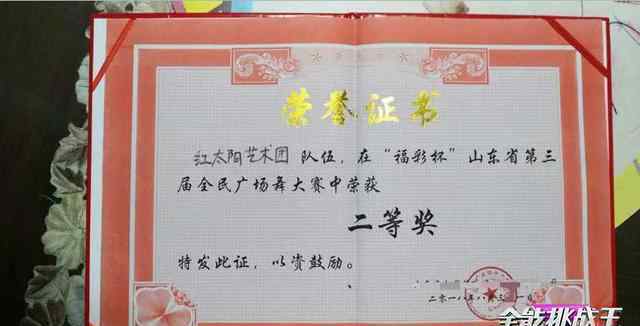 荣誉证书
红太阳艺术团 队伍，在“福彩杯”山东省第三
届全民广场舞大赛中荣获
二等奖
特发此证，以资鼓励。
二〇一八年八月三十一日
全能挑战王